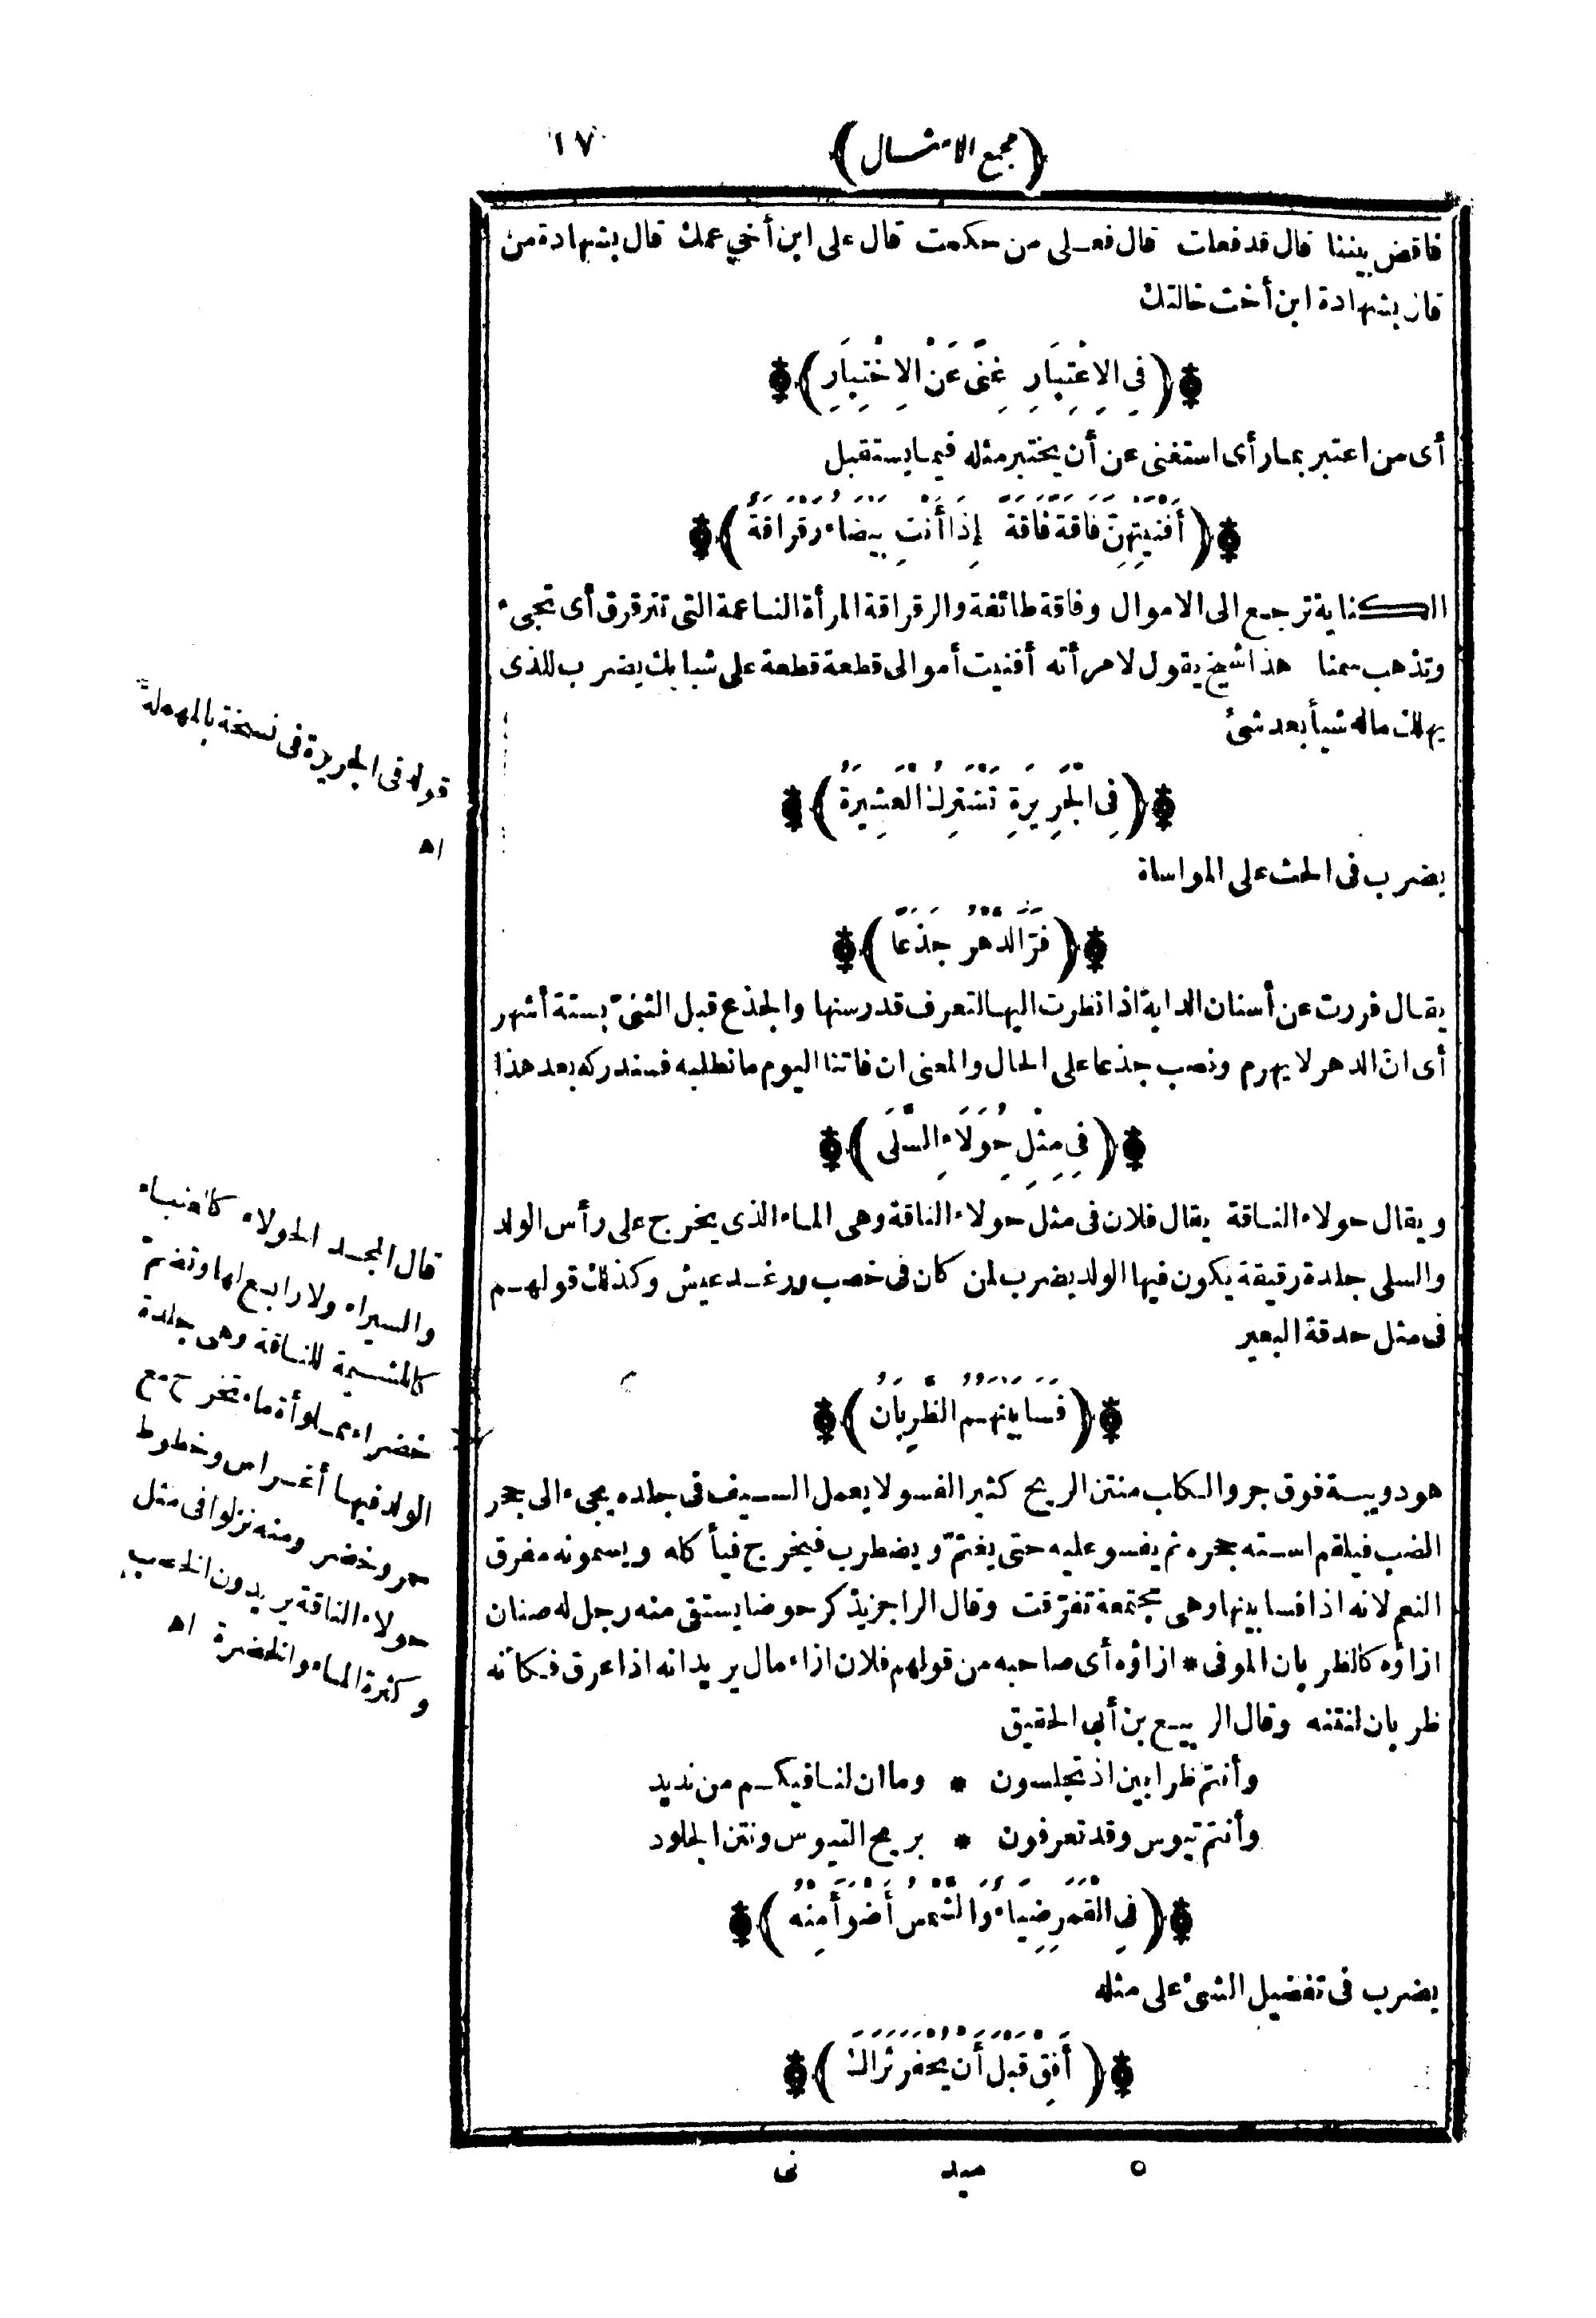 (مجمع الامثال) ١٧
فاقض بيننا قال قد فعلت قال فعلى من حكمت قال على ابن أخي عمك قال بشهادة من
قال بشهادة ابن أخت خالتك
(فِي الِاعْتِبَارِ غِنًى عَنْ الِاخْتِبَارِ)
أى من اعتبر بما رأى استغنى عن أن يختبر مثله فيما يستقبل
(أَفْنَيْتِهِنَّ فَاقَةً فَاقَةً إِذَا أَنْتِ بَيْضَاءُ رَقْرَاقَةٌ)
الكناية ترجع الى الاموال وفاقة طائفة والرقراقة المرأة الناعمة التى تترقرق أى تجىء
وتذهب سمنا هذا شيخ يقول لامرأته أفنيت أموالى قطعة قطعة على شبابك يضرب للذى
يهلك ماله شيأ بعد شئ
(فِى الْجَرِيرَةِ تَشْتَرِكُ الْعَشِيرَةُ)
يضرب فى الحث على المواساة
(فُرَّ الدَّهْرُ جَذَعًا)
يقال فررت عن أسنان الدابة اذا نظرت اليها لتعرف قدر سنها والجذع قبل الثنىّ بستة أشهر
أى انّ الدهر لا يهرم ونصب جذعا على الحال والمعنى ان فاتنا اليوم ما نطلبه فسندركه بعد هذا
(فِى مِثْلِ حُوَلَاءِ السَّلَى)
ويقال حولاء الناقة يقال فلان فى مثل حولاء الناقة وهى الماء الذى يخرج على رأس الولد
والسلى جلدة رقيقة يكون فيها الولد يضرب لمن كان فى خصب ورغد عيش وكذلك قولهم
فى مثل حدقة البعير
(فَسَا بَيْنَهُمُ الظَّرِبَانُ)
هو دويبة فوق جرو الكلب منتن الريح كثير الفسو لا يعمل السيف فى جلده يجىء الى جحر
الضب فيلقم استه جحره ثم يفسو عليه حتى يغتمّ ويضطرب فيخرج فيأكله ويسمونه مفرق
النعم لانه اذا فسا بينها وهى مجتمعة تفرّقت وقال الراجز يذكر حوضا يستقى منه رجل له صنان
ازاؤه كالظربان الموفى * ازاؤه أى صاحبه من قولهم فلان ازاء مال يريد انه اذا عرق فكأنه
ظربان لنتنه وقال الربيع بن أبى الحقيق
وأنتم ظرابين اذ تجلسون * وما ان لنا فيكم من نديد
وأنتم تيوس وقد تعرفون * بريح التيوس ونتن الجلود
(فِى الْقَمَرِ ضِيَاءٌ وَالشَّمْسُ أَضْوَأُ مِنْهُ)
يضرب فى تفضيل الشئ على مثله
(أَفِقْ قَبْلَ أَنْ يُحْفَرَ ثَرَاكَ)
٥ ميد نى
قوله فى الجريرة فى نسخة بالمهملة
اه
قال المجد الحولاء كالعنباء
والسيراء ولا رابع لها وتضمّ
كالمشيمة للناقة وهى جلدة
خضراء مملوأة ماء تخرج مع
الولد فيها أغراس وخطوط
حمر وخضر ومنه نزلوا فى مثل
حولاء الناقة يريدون الخصب
وكثرة الماء والخضرة اه